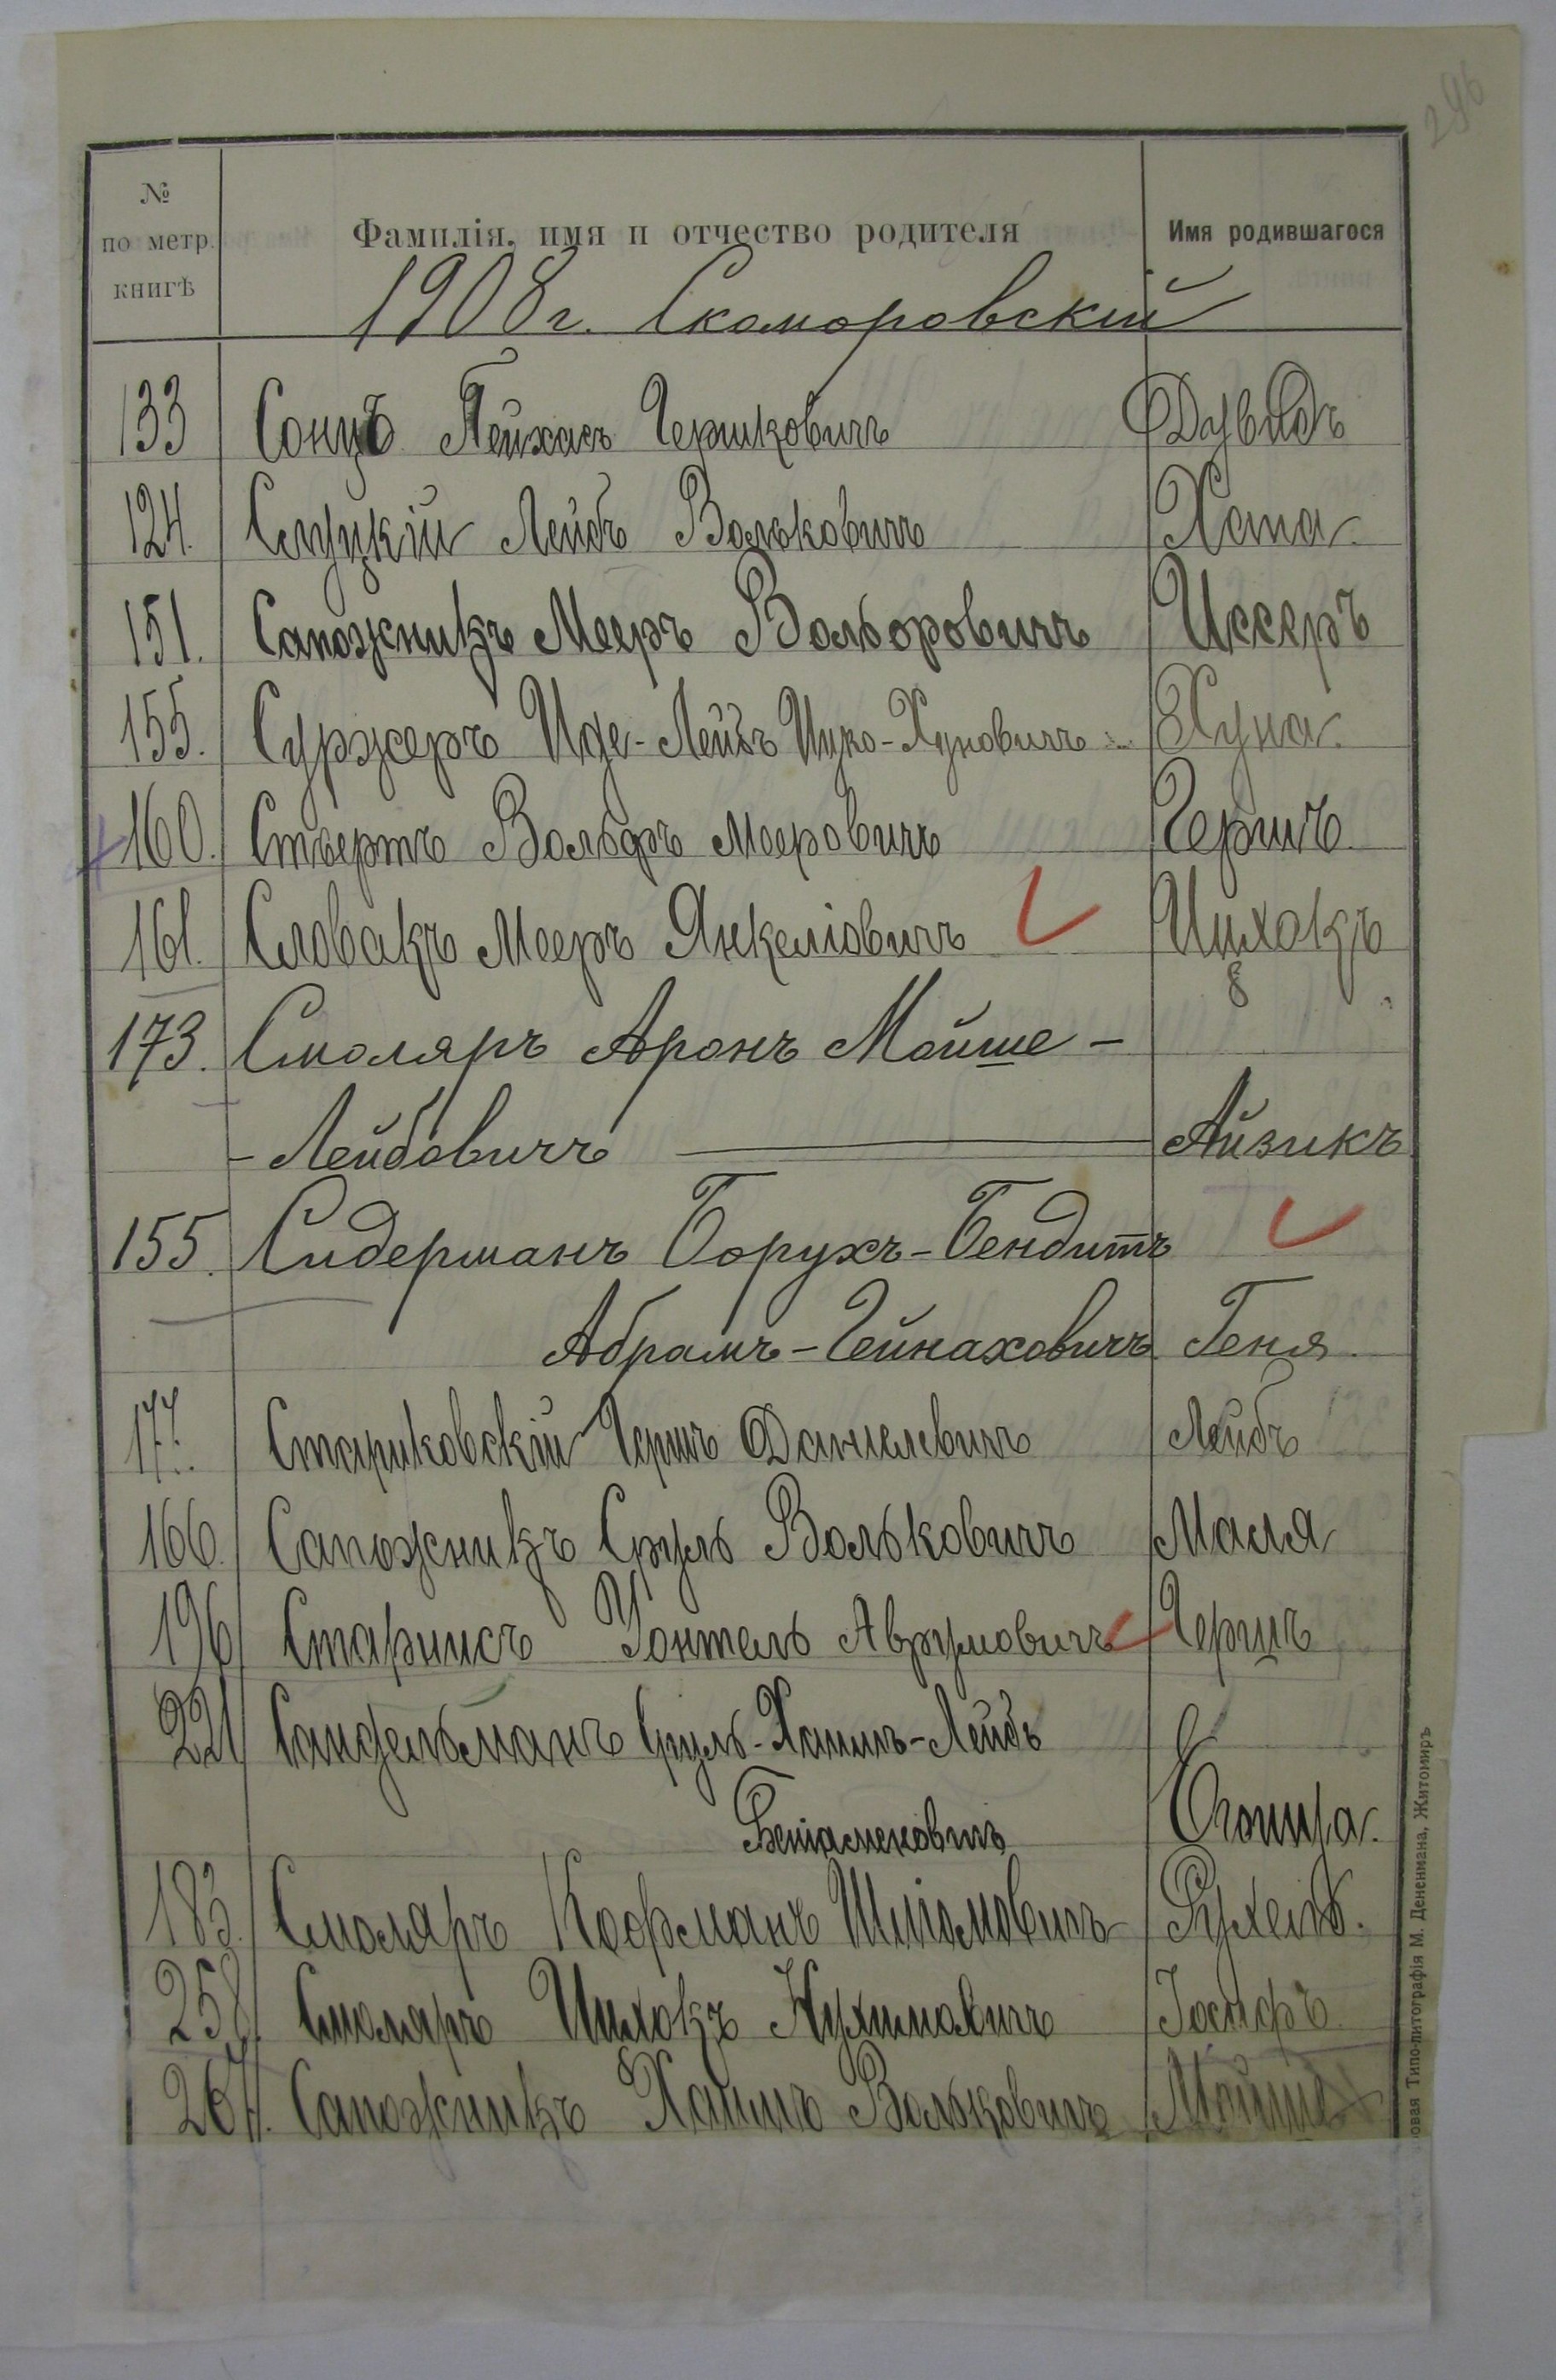 296
№ по метр. книгѣ
Фамилія, имя и отчество родителя
Имя родившагося
1908 г. Скоморовскій
133 Сонцъ Пейхасъ Гершковичъ Дувидъ
124. Слуцкій Лейбъ Вольковичъ Хома.
151. Сапожникъ Мееръ Вольфовичъ Иссеръ
155. Суржеръ Иде-Лейбъ Ицко-Хуновичъ Хуна.
160. Ствертъ Вольфъ Мееровичъ Гершъ
161. Словакъ Мееръ Янкеліовичъ Ицхокъ
173. Смоляръ Аронъ Мойше-
-Лейбовичъ Айзикъ
155. Сидерманъ Борухъ-Бендитъ
Абрамъ-Гейнаховичъ Геня.
177. Стариковскій Гершъ Даніелевичъ Лейбъ
166. Сапожникъ Сруль Вольковичъ Маля
196 Старисъ Аврумовичъ Гершъ
221 Сандельманъ Сруль-Хаимъ-Лейбъ
183. Смоляръ Кофманъ Шліомовичъ Рухель.
258. Смоляръ Ицхокъ Нухимовичъ Іосифъ
267. Сапожникъ Хаимъ Вольковичъ Мойше
овая Типо-литографія М. Дененмана, Житомиръ